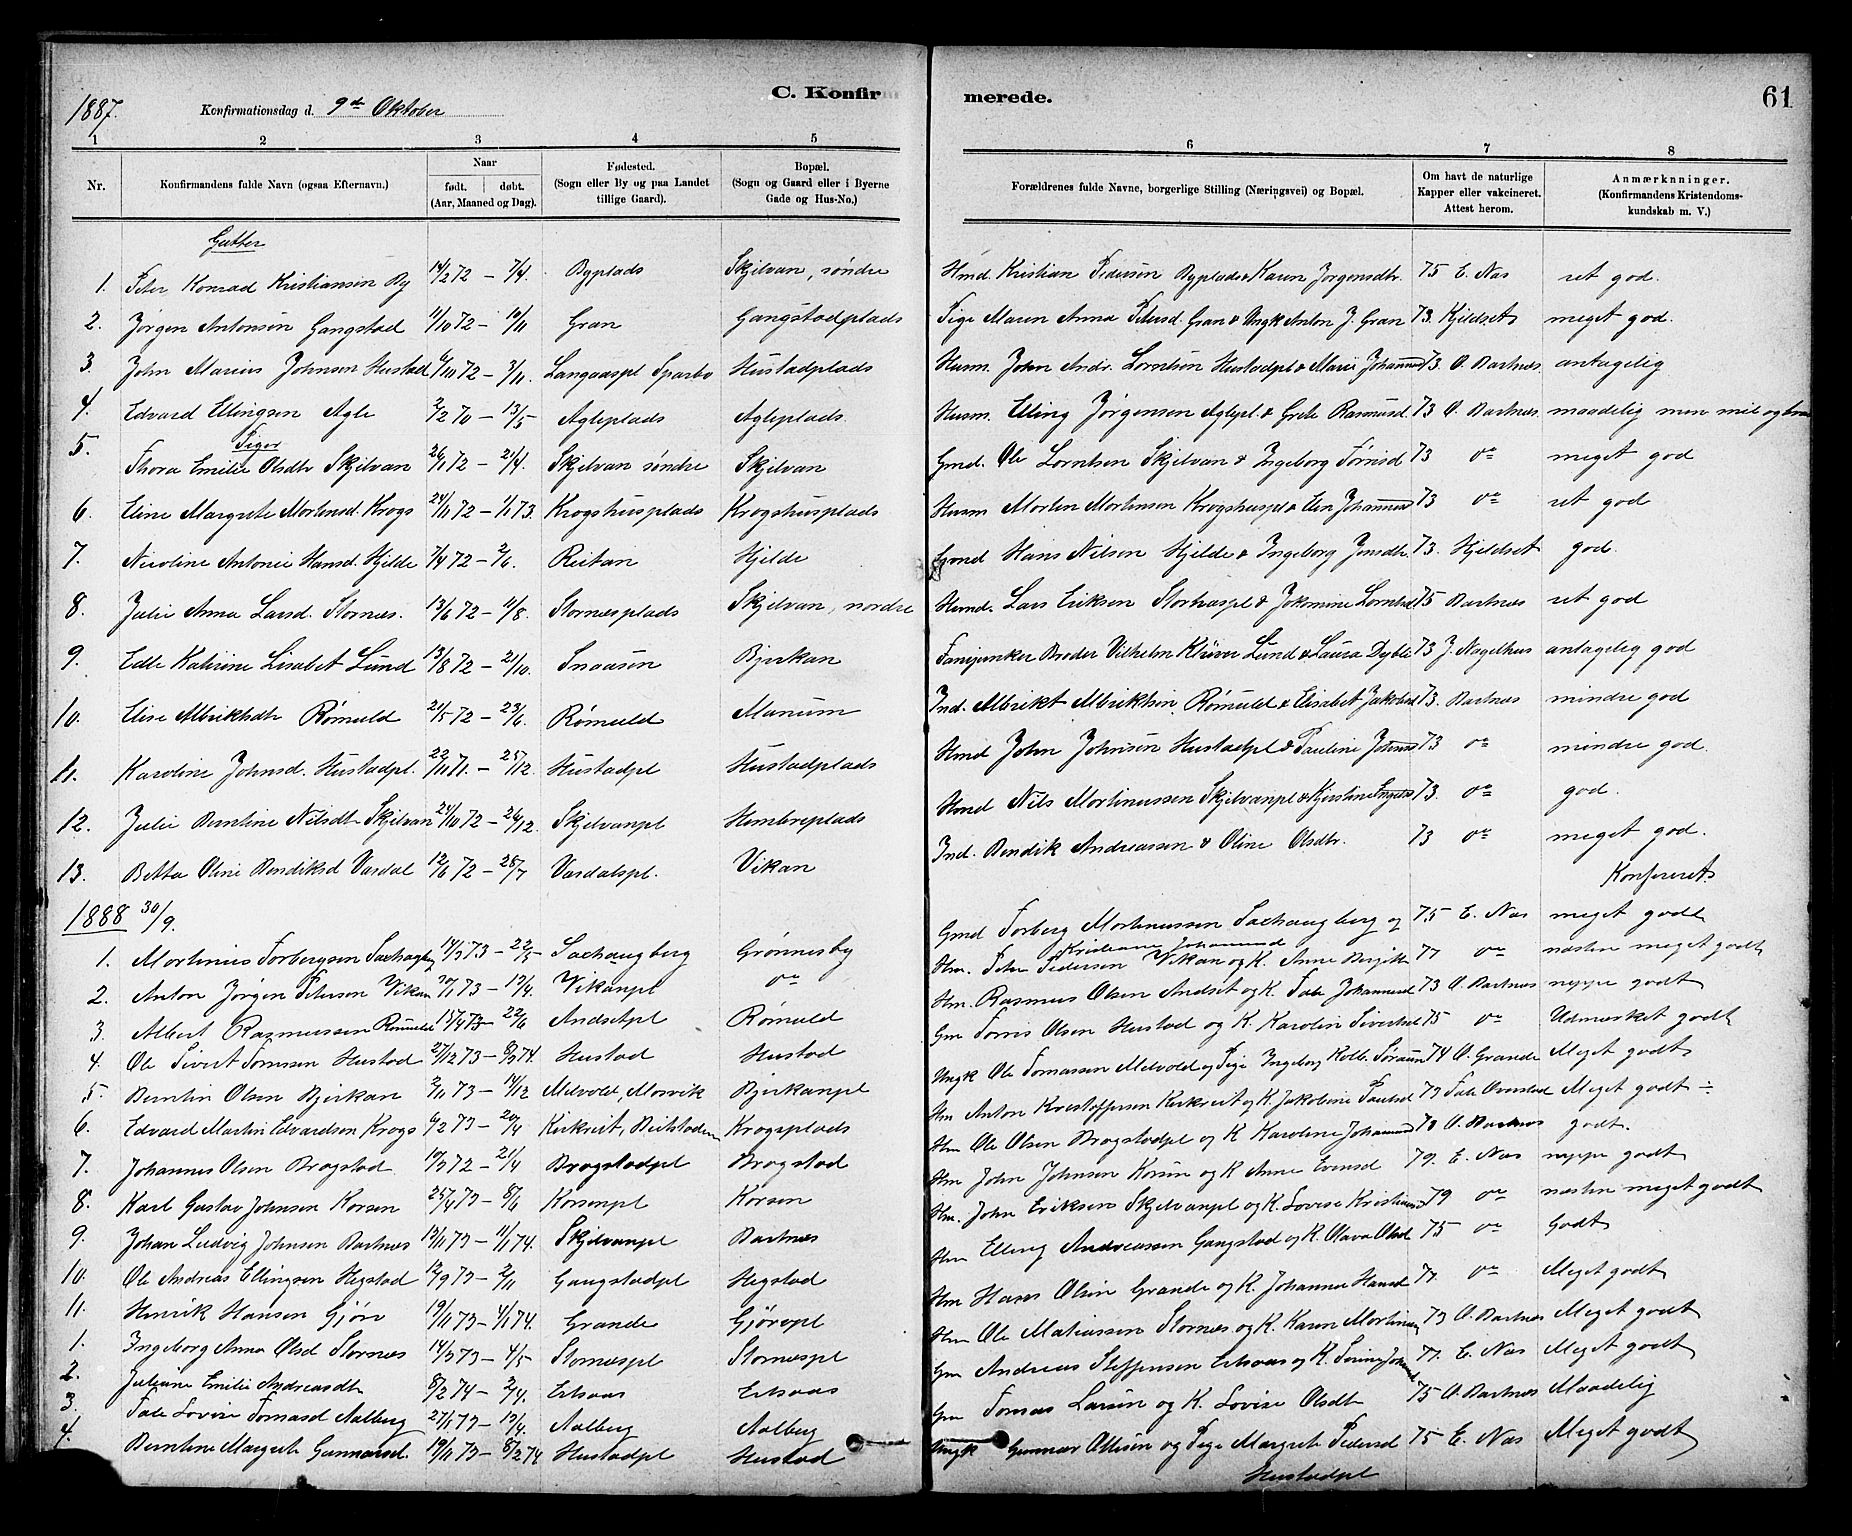 1887. Konfirmationsdag d. 9de Oktober C. Konfirmerede. 61
1 2 3 4 5 6 7 8
Nr. Konfirmandens fulde Navn (ogsaa Efternavn.) Naar født. døbt. (Aar, Maaned og Dag). Fødested. (Sogn eller By og paa Landet tillige Gaard). Bopæl. (Sogn og Gaard eller i Byerne Gade og Hus-No.) Forældrenes fulde Navne, borgerlige Stilling (Næringsvei) og Bopæl. Om havt de naturlige Kapper eller vakcineret. Attest herom. Anmærkninger. (Konfirmandens Kristendomskundskab m. V.)
Gutter
1. Peter Konrad Kristiansen By 14/2 72 – 7/4. Byplads Skjelvan, søndre Hmd Kristian Pedersen Byplads & Karen Jørgensdtr. 75 E. Nas ret god.
2. Jørgen Antonsen Gangstad 11/10 72 – 10/11 Gran Gangstadplads Pige Maren Anna Petersd. Gran & Ungk Anton J. Gran 73. Kjeldset meget god.
3. John Marius Johnsen Hustad 6/10 72 – 3/11. Langaaspl Sparbo Hustadplads Husm. John Andr. Lorntsen Hustadpl & Marie Johannesd 73. O. Bartnes antagelig
4. Edvard Ellingsen Agle 2/2 70 – 13/5 Agleplads Agleplads. Husm. Elling Jørgensen Aglepl. & Grete Rasmusd. 73 O. Bartnes. maadelig men
Piger
5. Thora Emilie Olsdtr Skjelvan 26/1 72 – 21/4. Skjelvan søndre Skjelvan Gmd. Ole Lorntsen Skjelvan & Ingeborg Tørrisd 73 do meget god
6. Eline Margrete Mortensd. Krogs 24/11 72 – 1/1 73. Krogshusplads Krogshusplads Husm Morten Mortensen Krogshuspl & Elen Johannesd 73 do ret god
7. Nicoline Antonie Hansd. Hjelde 7/4 72 – 2/6. Reitan Hjelde Gmd Hans Nilsen Hjelde & Ingeborg Jensdtr. 73. Hjeldset god.
8. Julie Anna Larsd. Stornes. 13/6 72 – 11/8. Stornesplads Skjelvan, nordre Husmd. Lars Eriksen Stornespl & Jokomine Lorntsd 75 Bartnes ret god
9. Edle Katrine Lisabet Lund 13/8 72 – 21/10. Snaasen Bjerkan Fanejunker Broder Vilhelm Klüver Lund & Laura Dyblie 73 J. Nagelhus antagelig god
10. Elise Albriktsdtr Rømuld 21/5 72 – 23/6. Rømuld Manum Ind. Albrikt Albriktsen Rømuld & Elisabet Jakobsd 73. Bartnes mindre god
11. Karoline Johnsd. Hustadpl. 22/11 71. – 25/12. Hustadpl Hustadplads Hmd John Johnsen Hustadpl & Pauline Johnsd 73 do mindre god.
12. Julie Berntine Nilsdtr Skjelvan 24/10 72 – 26/12. Skjelvanpl Hembreplads Hmd Nils Mortinussen Skjelvanpl & Kjerstine 73. do god.
13. Betta Oline Bendiksd Vardal 12/6 72 – 28/7 Vardalspl. Vikan Ind. Bendik Andreassen & Oline Olsdtr. 73 do meget god.
Konfereret.
1888 30/9.
1. Mortinus Torbergsen Saxhagbg 14/3 73 – 22/5 Saxhaugberg Grønnesby Gmd Torberg Mortinussen Saxhaugberg og Kristiane Johannesd 75 E. Nas meget godt
2. Anton Jørgen Petersen Vikan 20/1 73 – 13/4. Vikanpl do Hm. Peter Pedersen Vikan og K. Anne Birgitte 77 do næsten meget godt
3. Albert Rasmussen Rømuld 13/4 73 – 22/6 Andsetpl Rømuld Hm. Rasmus Olsen Andset og K. Johannesd 73 O. Bartnes neppe godt
4. Ole Sivert Tørrissen Hustad 27/12 73 – 8/3 74. Hustad Hustad Gm Torris Olsen Hustad og K. Karolin Sivertsd 75 do Udmærket godt
5. Berntin Olsen Bjerkan 2/11 73 – 14/12 Melvold, Mosvik Bjerkanpl Ungk Ole Tomassen Melvold og Pige Ingeborg 74 O. Grande Meget godt
6. Edvard Martin Edvardsen Krogs 6/2 73 – 20/4 Kirkreit, Beitstaden Krogsplads Hm Anton Kristoffersen Kirkreit og K. Jakobine Paulsd 73 Meget godt ÷
7. Johannes Olsen Brogstad 10/3 72 – 21/4 Brogstadpl Brogstad Hm Ole Olsen Brogstadpl og K Karoline Johannesd 78 O. Bartnes godt.
8. Karl Gustav Johnsen Korsen 25/4 73 – 8/6 Korsenpl Korsen Hm John Johnsen Korsen og K Anne Evensd 79. E. Nas neppe godt
9. Johan Ludvig Johnsen Bartnes 13/11 73 – 11/1 74. Skjelvanpl Bartnes Hm. John Eriksen Skjelvanpl og K. Lovise Kristiansd 79 do næsten meget godt
10. Ole Andreas Ellingsen Hegstad 12/9 73 – 2/11 Gangstadpl Hegstad Hm Elling Andreassen Gangstad og K. Olava Olsd 75 do Godt
11. Henrik Hansen Gjørv 19/11 73 – 4/1 74. Grande Gjørvpl Hm Hans Olsen Grande og K. Johanna Hansd 77. do Meget godt
1. Ingeborg Anna Olsd Stornes 14/3 73 – 4/5 Stornespl Stornespl Hm Ole Matiassen Stornes og K. Karen Mortinusd 73 O. Bartnes Meget godt
2. Juliane Emilie Andreasdtr 8/2 74 – 2/4. Ertsaas Ertsaas Gm Andreas Steffensen Ertsaas og K. 77. E. Nas Meget godt
3. Lovise Tomasd Aalberg 27/1 73 – 13/4. Aalberg Aalberg Gm Tomas Larsen og K. Lovise Olsdt 75 O. Bartnes Maadelig
4. Berntine Margrete Gunnarsd. 19/11 73 – 8/2 74 Hustadpl Hustad Ungk Gunnar Ottesen og Pige Margrete Pedersd Hustadpl 75 E. Nas Meget godt